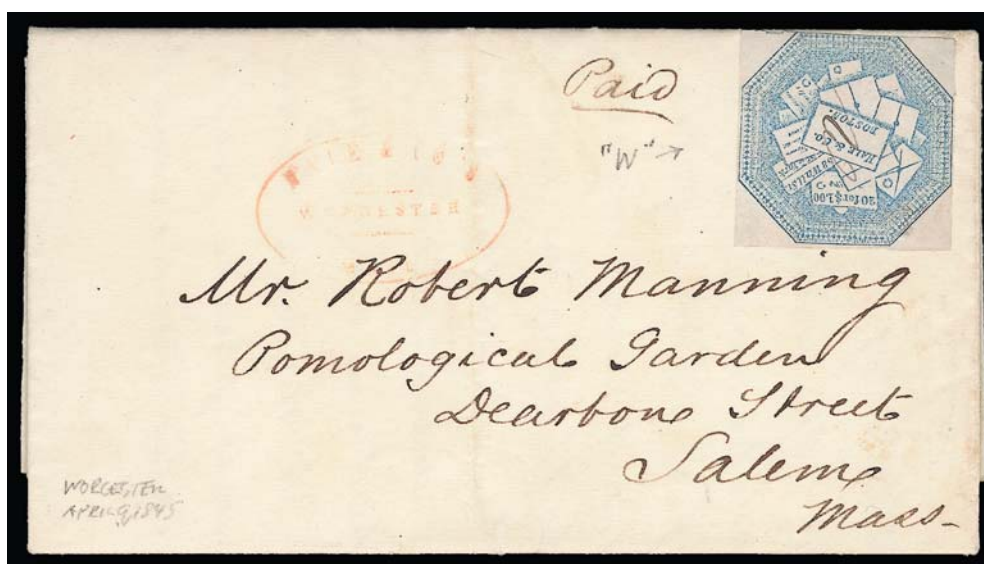 Paid
"W" →
WORCESTER
HALE & CO.
BOSTON.
20 for $1.00
Mr. Robert Manning
Pomological Garden
Dearbone Street
Salem
Mass-
WORCESTER
APRIL 9, 1845